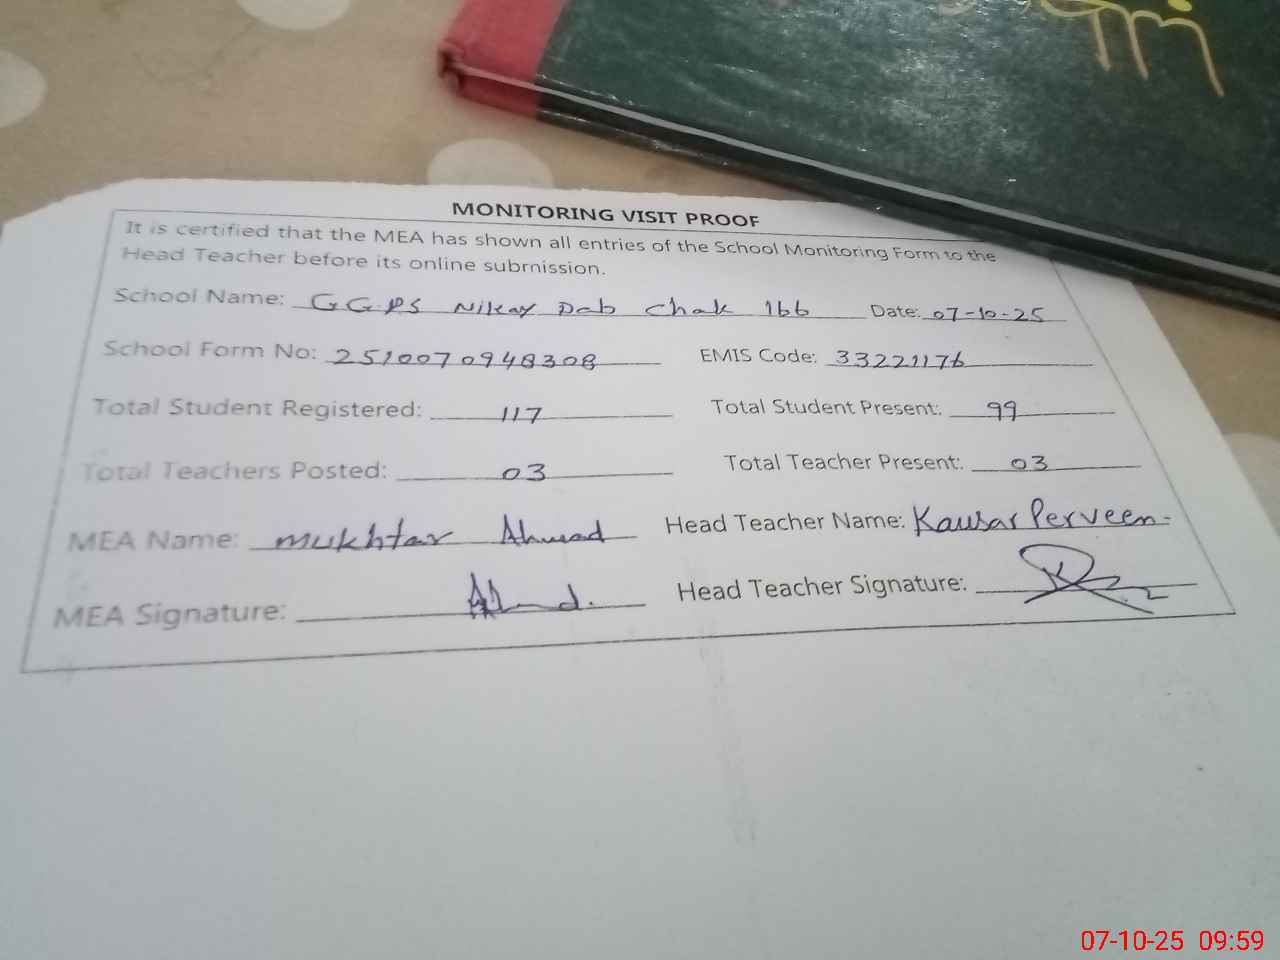 MONITORING VISIT PROOF
It is certified that the MEA has shown all entries of the School Monitoring Form to the
Head Teacher before its online submission.
School Name: GGPS Nikay Dab Chak 166 Date: 07-10-25
School Form No: 2510070948308 EMIS Code: 33221176
Total Student Registered: 117 Total Student Present: 99
Total Teachers Posted: 03 Total Teacher Present: 03
MEA Name: Mukhtar Ahmad Head Teacher Name: Kausar Perveen
MEA Signature: Head Teacher Signature:
07-10-25 09:59